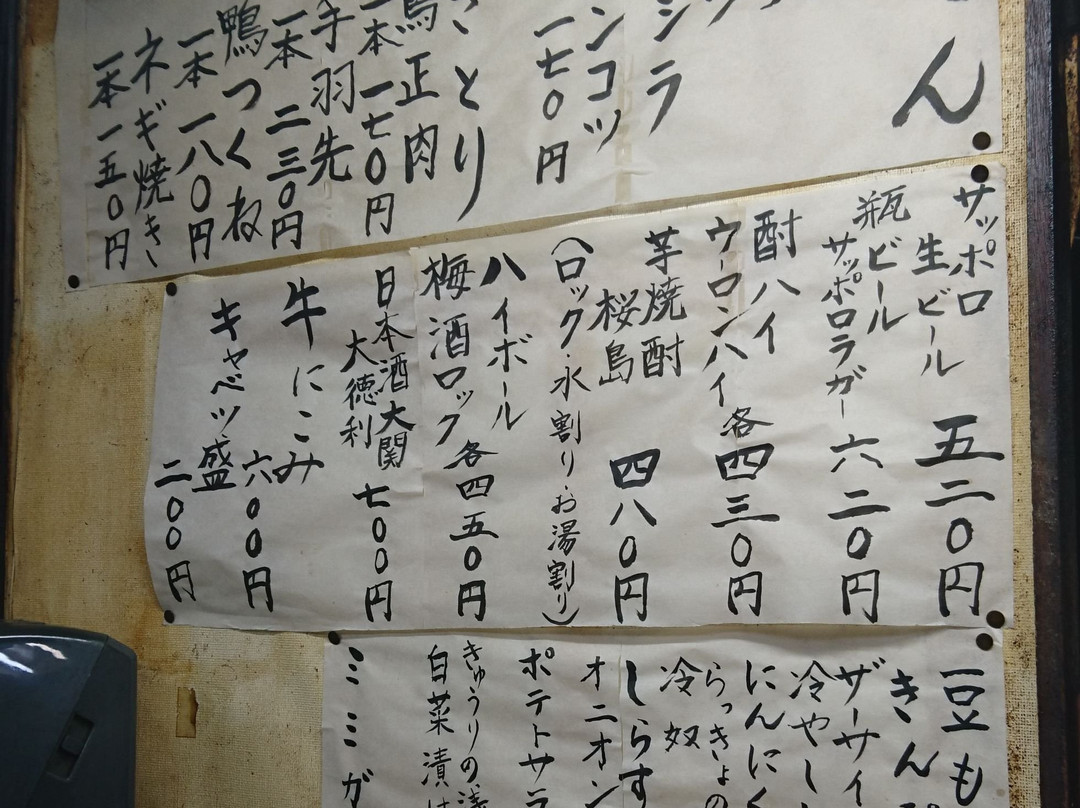 ん
シラ
ンコツ
一七〇円
さとり
鳥正肉
一本一七〇円
手羽先
一本二三〇円
鴨つくね
一本一八〇円
ネギ焼き
一本一五〇円
サッポロ
生ビール 五二〇円
瓶ビール
サッポロラガー 六二〇円
酎ハイ
ウーロンハイ 各四三〇円
芋焼酎
桜島 四八〇円
(ロック・水割り・お湯割り)
ハイボール
梅酒ロック 各四五〇円
日本酒大関
大徳利 七〇〇円
牛にこみ
六〇〇円
キャベツ盛
二〇〇円
豆も
きん
ザーサイ
冷やし
にんにく
らっきょの
冷奴
しらす
オニオン
ポテトサラ
きゅうりの浅
白菜漬け
ミミガ